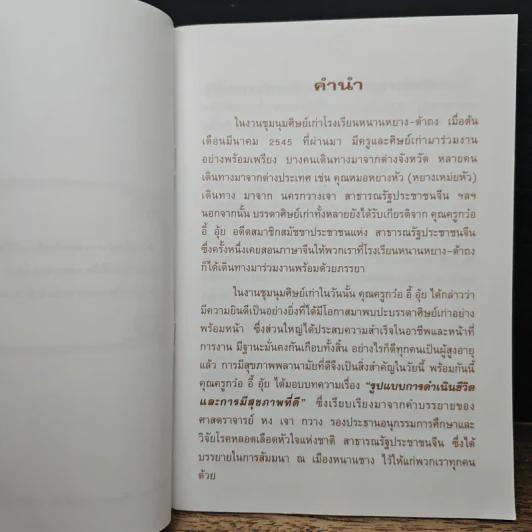 คำนำ
ในงานชุมนุมศิษย์เก่าโรงเรียนหนานหยาง-ต้าถง เมื่อต้น
เดือนมีนาคม 2545 ที่ผ่านมา มีครูและศิษย์เก่ามาร่วมงาน
อย่างพร้อมเพรียง บางคนเดินทางมาจากต่างจังหวัด หลายคน
เดินทางมาจากต่างประเทศ เช่น คุณหมอหยางหัว (หยางเหม่ยหัว)
เดินทาง มาจาก นครกวางเจา สาธารณรัฐประชาชนจีน ฯลฯ
นอกจากนั้น บรรดาศิษย์เก่าทั้งหลายยังได้รับเกียรติจาก คุณครูกว๋อ
อี้ อุ้ย อดีตสมาชิกสมัชชาประชาชนแห่ง สาธารณรัฐประชาชนจีน
ซึ่งครั้งหนึ่งเคยสอนภาษาจีนให้พวกเราที่โรงเรียนหนานหยาง-ต้าถง
ก็ได้เดินทางมาร่วมงานพร้อมด้วยภรรยา
ในงานชุมนุมศิษย์เก่าในวันนั้น คุณครูกว๋อ อี้ อุ้ย ได้กล่าวว่า
มีความยินดีเป็นอย่างยิ่งที่ได้มีโอกาสมาพบปะบรรดาศิษย์เก่าอย่าง
พร้อมหน้า ซึ่งส่วนใหญ่ได้ประสบความสำเร็จในอาชีพและหน้าที่
การงาน มีฐานะมั่นคงกันเกือบทั้งสิ้น อย่างไรก็ดีทุกคนเป็นผู้สูงอายุ
แล้ว การมีสุขภาพพลานามัยที่ดีจึงเป็นสิ่งสำคัญในวัยนี้ พร้อมกันนี้
คุณครูกว๋อ อี้ อุ้ย ได้มอบบทความเรื่อง "รูปแบบการดำเนินชีวิต
และการมีสุขภาพที่ดี" ซึ่งเรียบเรียงมาจากคำบรรยายของ
ศาสตราจารย์ หง เจา กวาง รองประธานอนุกรรมการศึกษาและ
วิจัยโรคหลอดเลือดหัวใจแห่งชาติ สาธารณรัฐประชาชนจีน ซึ่งได้
บรรยายในการสัมมนา ณ เมืองหนานชาง ไว้ให้แก่พวกเราทุกคน
ด้วย